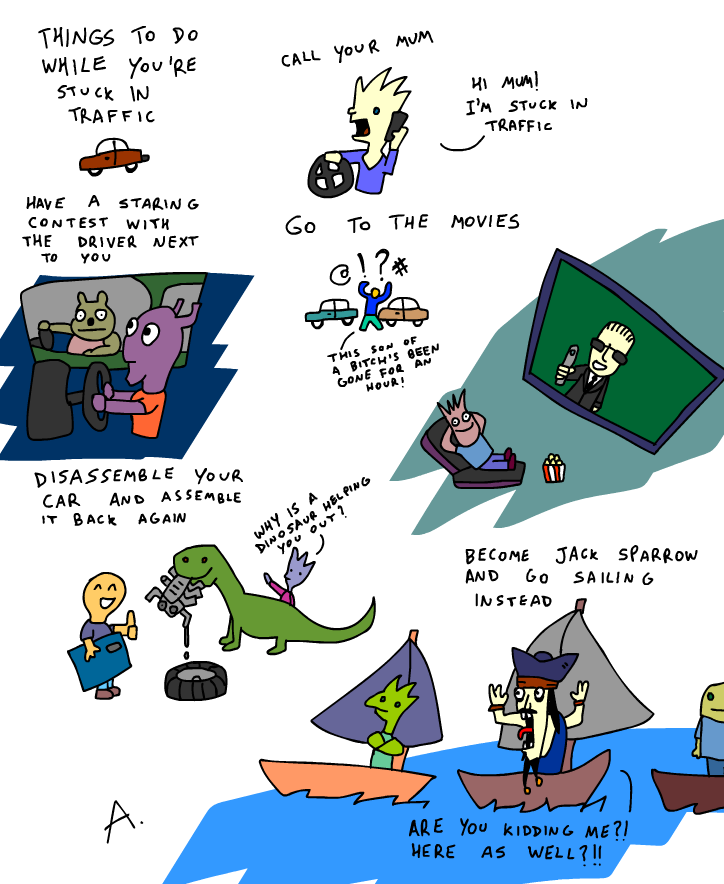 THINGS TO DO
WHILE YOU'RE
STUCK IN
TRAFFIC
CALL YOUR MUM
HI MUM!
I'M STUCK IN
TRAFFIC
HAVE A STARING
CONTEST WITH
THE DRIVER NEXT
TO YOU
GO TO THE MOVIES
@!?#
THIS SON OF
A BITCH'S BEEN
GONE FOR AN
HOUR!
DISASSEMBLE YOUR
CAR AND ASSEMBLE
IT BACK AGAIN
WHY IS A
DINOSAUR HELPING
YOU OUT?
BECOME JACK SPARROW
AND GO SAILING
INSTEAD
ARE YOU KIDDING ME?!
HERE AS WELL?!!
A.